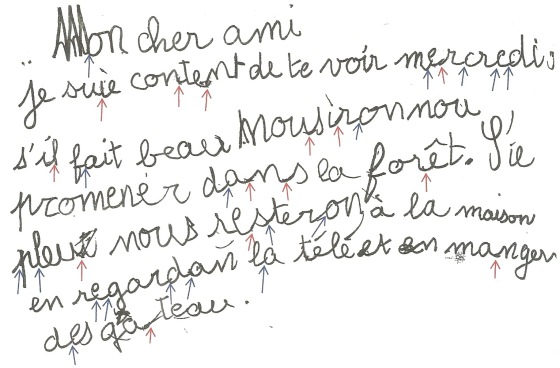 Mon cher ami
je suie content de te voir mercredi.
s'il fait beau nousironnou
promener dans la forêt. S'ie
pleut nous resteronà la maison
en regardan la téléet en manger
des gâteau.